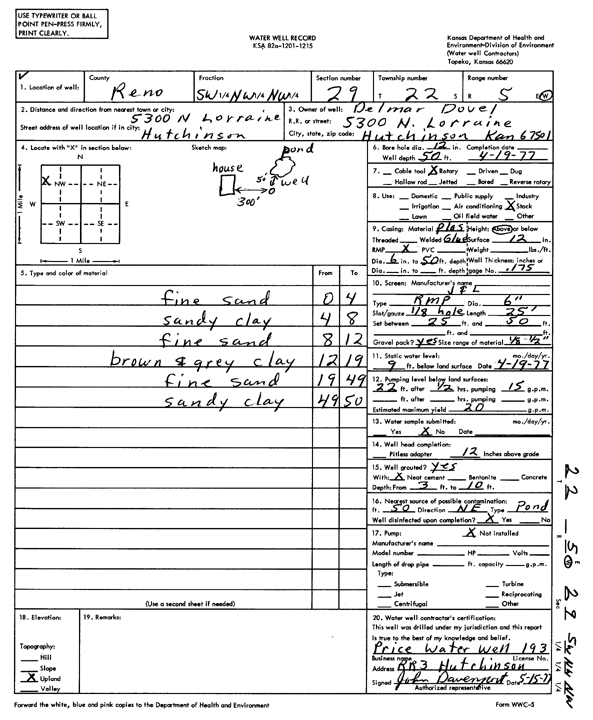 USE TYPEWRITER OR BALL
POINT PEN-PRESS FIRMLY,
PRINT CLEARLY.
WATER WELL RECORD
KSA 82a-1201-1215
Kansas Department of Health and
Environment-Division of Environment
(Water well Contractors)
Topeka, Kansas 66620
1. Location of well: County Reno Fraction SW 1/4 NW 1/4 NW 1/4 Section number 29 Township number T 22 S Range number R 5 E W
2. Distance and direction from nearest town or city: 5300 N Lorraine
Street address of well location if in city: Hutchinson
3. Owner of well: Delmar Dovel
R.R. or street: 5300 N. Lorraine
City, state, zip code: Hutchinson Kan 67501
4. Locate with "X" in section below:
N
X NW NE
W E
SW SE
S
1 Mile
1 Mile
Sketch map:
pond
house
50'
well
300'
6. Bore hole dia. 12 in. Completion date
Well depth 50 ft. 4-19-77
7. Cable tool X Rotary Driven Dug
Hollow rod Jetted Bored Reverse rotary
8. Use: Domestic Public supply Industry
Irrigation Air conditioning X Stock
Lawn Oil field water Other
9. Casing: Material plas Height: Above or below
Threaded Welded Glue Surface 12 in.
RMP X PVC Weight lbs./ft.
Dia. 6 in. to 50 ft. depth Wall Thickness: inches or
Dia. in. to ft. depth gage No. .175
5. Type and color of material From To
fine sand 0 4
sandy clay 4 8
fine sand 8 12
brown & grey clay 12 19
fine sand 19 49
sandy clay 49 50
(Use a second sheet if needed)
10. Screen: Manufacturer's name
Type RMP Dia. 6"
Slot/gauze 1/8 hole Length 25'
Set between 25 ft. and 50 ft.
ft. and ft.
Gravel pack? yes Size range of material 1/8-1/2"
11. Static water level: mo./day/yr.
9 ft. below land surface Date 4-19-77
12. Pumping level below land surfaces:
22 ft. after 1/2 hrs. pumping 15 g.p.m.
ft. after hrs. pumping g.p.m.
Estimated maximum yield 20 g.p.m.
13. Water sample submitted: mo./day/yr.
Yes X No Date
14. Well head completion:
Pitless adapter 12 Inches above grade
15. Well grouted? yes
With: X Neat cement Bentonite Concrete
Depth: From 3 ft. to 10 ft.
16. Nearest source of possible contamination:
ft. 50 Direction NE Type Pond
Well disinfected upon completion? X Yes No
17. Pump: X Not installed
Manufacturer's name
Model number HP Volts
Length of drop pipe ft. capacity g.p.m.
Type:
Submersible Turbine
Jet Reciprocating
Centrifugal Other
18. Elevation:
Topography:
Hill
Slope
X Upland
Valley
19. Remarks:
20. Water well contractor's certification:
This well was drilled under my jurisdiction and this report
is true to the best of my knowledge and belief.
Price Water Well 193
Business name License No.
Address RR3 Hutchinson
Signed John Davenport Date 5-15-77
Authorized representative
Forward the white, blue and pink copies to the Department of Health and Environment
Form WWC-5